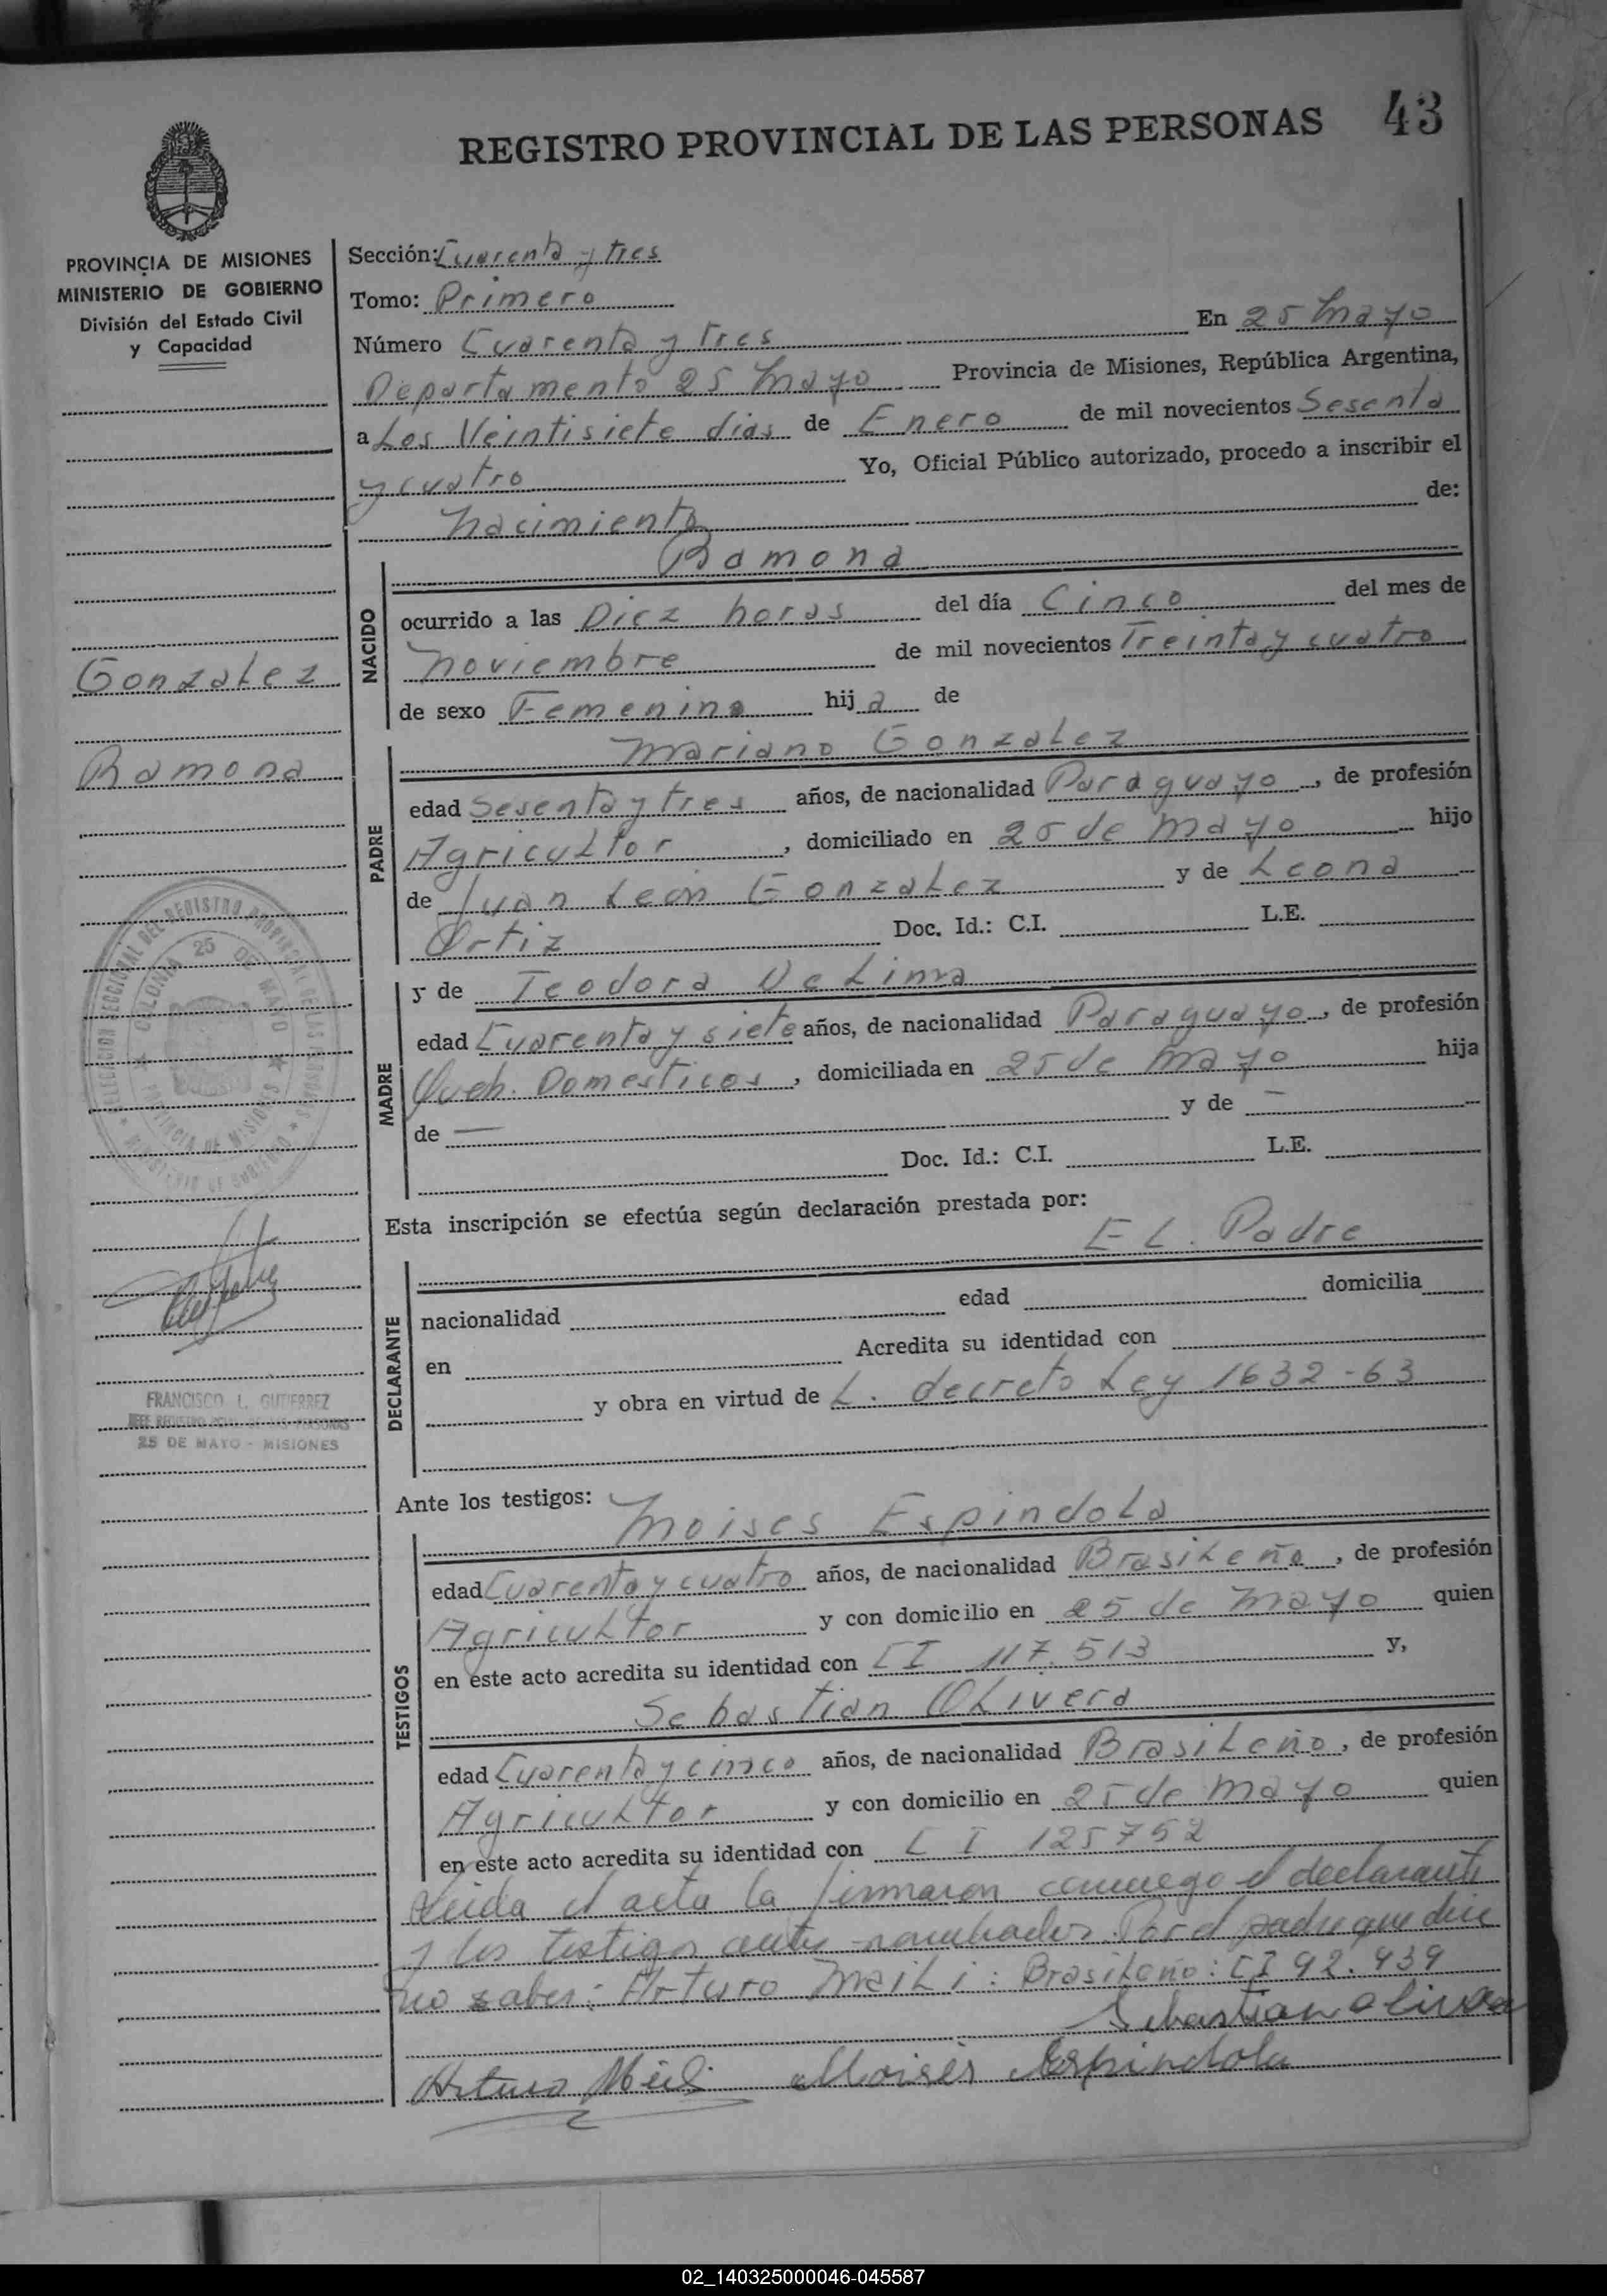 43
REGISTRO PROVINCIAL DE LAS PERSONAS
PROVINCIA DE MISIONES
MINISTERIO DE GOBIERNO
División del Estado Civil
y Capacidad
Gonzalez
Ramona
DELEGACION SECCIONAL DEL REGISTRO PROVINCIAL DE LAS PERSONAS
COLONIA 25 DE MAYO
PROVINCIA DE MISIONES
MINISTERIO DE GOBIERNO
FRANCISCO L. GUTIERREZ
JEFE REGISTRO PCIAL. DE LAS PERSONAS
25 DE MAYO - MISIONES
Sección: Cuarenta y tres
Tomo: Primero
Número Cuarenta y tres En 25 Mayo
Departamento 25 Mayo Provincia de Misiones, República Argentina,
a Los Veintisiete dias de Enero de mil novecientos Sesenta
y cuatro Yo, Oficial Público autorizado, procedo a inscribir el
Nacimiento de:
NACIDO
Ramona
ocurrido a las Diez horas del día Cinco del mes de
Noviembre de mil novecientos Treinta y cuatro
de sexo Femenina hij a de
PADRE
Mariano Gonzalez
edad Sesenta y tres años, de nacionalidad Paraguayo, de profesión
Agricultor, domiciliado en 25 de Mayo hijo
de Juan León Gonzalez y de Leona
Ortiz Doc. Id.: C.I. L.E.
MADRE
y de Teodora De Lima
edad Cuarenta y siete años, de nacionalidad Paraguayo, de profesión
Queh. Domesticos, domiciliada en 25 de Mayo hija
de — y de —
Doc. Id.: C.I. L.E.
Esta inscripción se efectúa según declaración prestada por:
DECLARANTE
EL. Padre
nacionalidad edad domicilia
en Acredita su identidad con
y obra en virtud de L. decreto Ley 1632-63
Ante los testigos:
TESTIGOS
Moises Espindola
edad Cuarenta y cuatro años, de nacionalidad Brasileño, de profesión
Agricultor y con domicilio en 25 de Mayo quien
en este acto acredita su identidad con CI 117.513 y,
Sebastian Olivera
edad Cuarenta y cinco años, de nacionalidad Brasileño, de profesión
Agricultor y con domicilio en 25 de Mayo quien
en este acto acredita su identidad con CI 125752
Leida el acta la firmaron conmigo el declarante
y los testigos ante nombrados. Por el padre que dice
no saber: Arturo Meili: Brasileño: CI 92.939
Sebastian Olivera
Arturo Meili Moisés Espindola
02_140325000046-045587